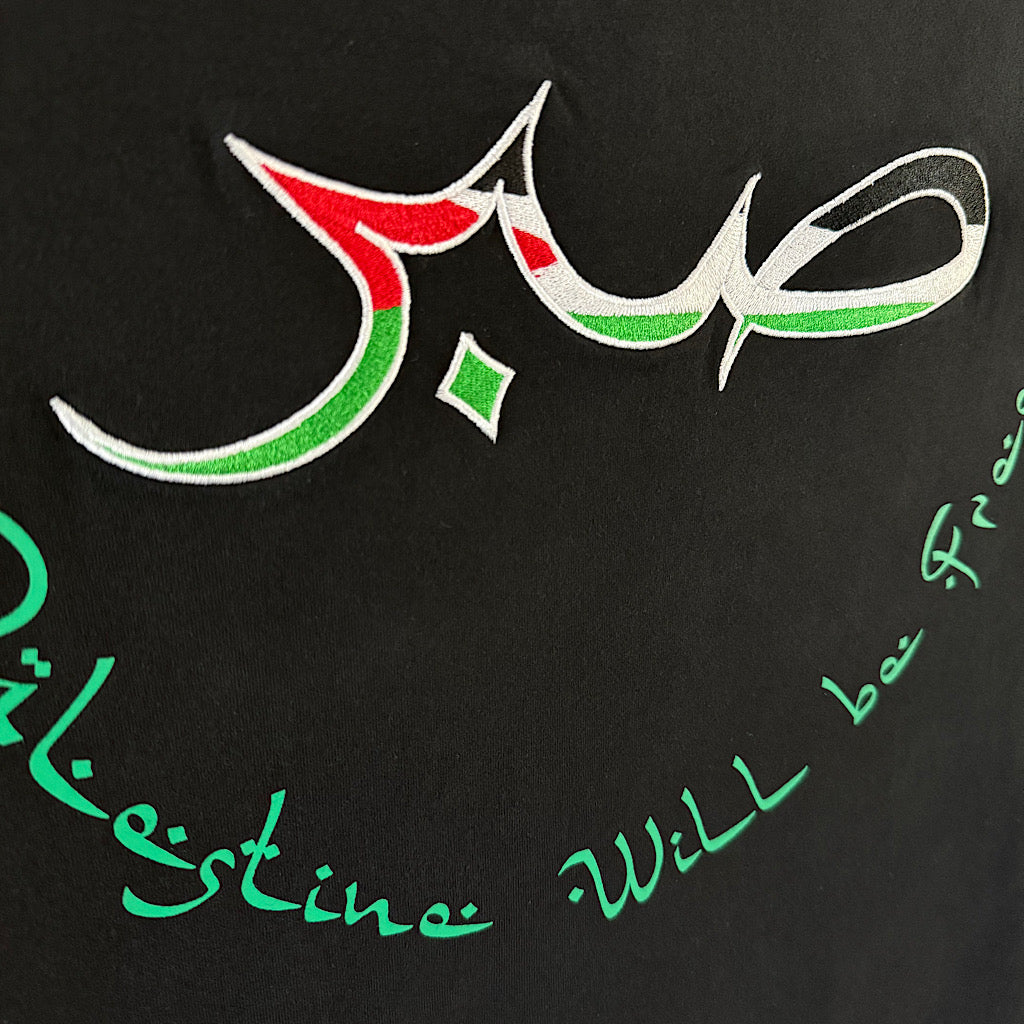 صبر
Palestine Will be Free